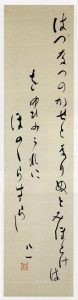 はつなつのかせとなりぬとみほとけは
をゆひのうれに
ほのしらすらし
八一